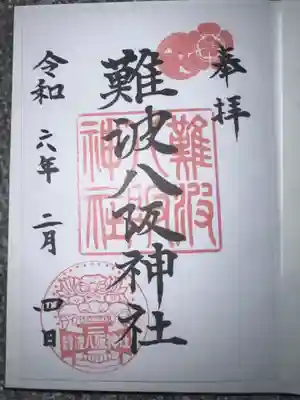 奉拝
難波八阪神社
令和六年二月四日
難波
八阪
神社